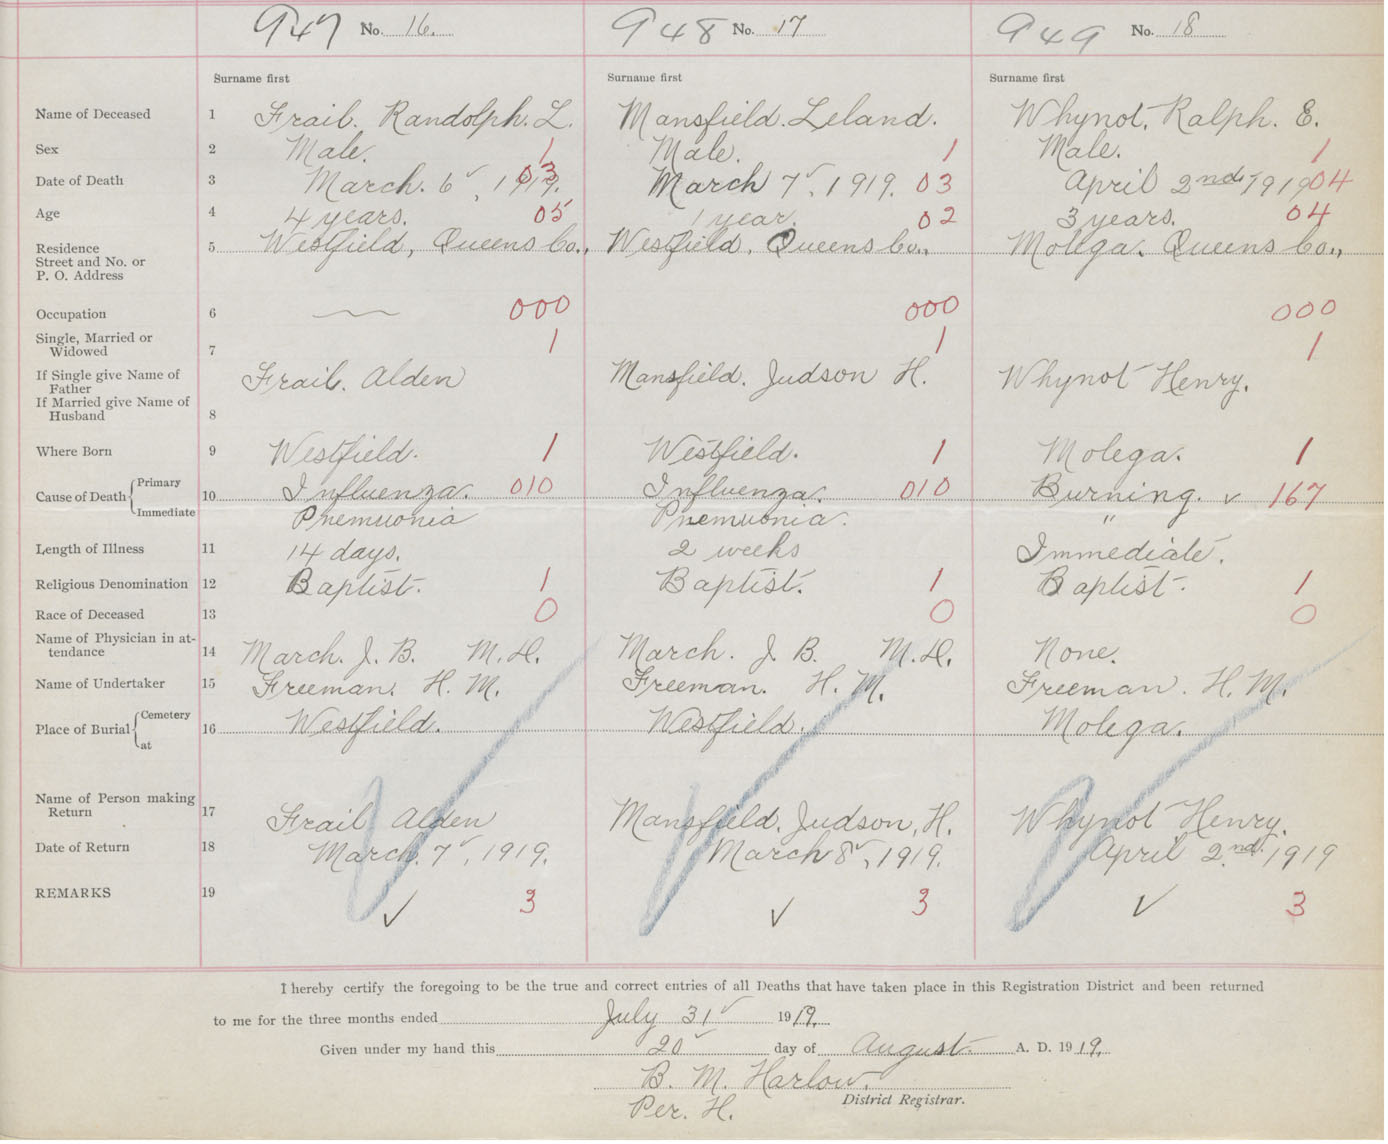 947 No. 16. 948 No. 17 949 No. 18
Surname first Surname first Surname first
Name of Deceased 1 Frail. Randolph. L. Mansfield. Leland. Whynot, Ralph. E.
Sex 2 Male. 1 Male. 1 Male. 1
Date of Death 3 March. 6, 1919. 03 March 7, 1919. 03 April 2nd, 1919 04
Age 4 4 years. 05 1 year. 02 3 years. 04
Residence 5 Westfield, Queens Co., Westfield, Queens Co., Molega. Queens Co.,
Street and No. or
P. O. Address
Occupation 6 000 000 000
Single, Married or
Widowed 7 1 1 1
If Single give Name of
Father Frail. Alden Mansfield. Judson H. Whynot Henry.
If Married give Name of
Husband 8
Where Born 9 Westfield. 1 Westfield. 1 Molega. 1
Cause of Death { Primary 10 Influenza. 010 Influenza. 010 Burning. ✓ 167
Immediate Pnemuonia Pnemuonia. "
Length of Illness 11 14 days. 2 weeks Immediate.
Religious Denomination 12 Baptist. 1 Baptist. 1 Baptist. 1
Race of Deceased 13 0 0 0
Name of Physician in at-
tendance 14 March. J. B. M.D. March. J. B. M.D. None.
Name of Undertaker 15 Freeman. H. M. Freeman. H. M. Freeman. H. M.
Place of Burial { Cemetery 16 Westfield. Westfield. Molega.
at
Name of Person making
Return 17 Frail Alden Mansfield. Judson, H. Whynot Henry.
Date of Return 18 March. 7, 1919. March 8, 1919. April 2nd. 1919
REMARKS 19 ✓ 3 ✓ 3 ✓ 3
I hereby certify the foregoing to be the true and correct entries of all Deaths that have taken place in this Registration District and been returned
to me for the three months ended July 31 1919.
Given under my hand this 20 day of August A. D. 1919.
B. M. Harlow.
Per. H. District Registrar.